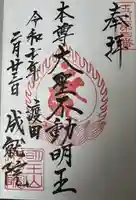 奉拝
本尊 大聖不動明王
令和七年 渡田
二月廿三日 成就院